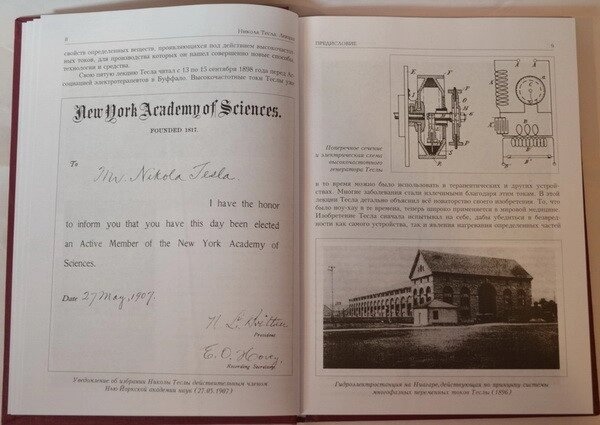 8 Никола Тесла. Лекции
свойств определенных веществ, проявляющихся под действием высокочастот
ных токов, для производства которых он нашел совершенно новые способы,
технологии и средства.
Свою пятую лекцию Тесла читал с 13 по 15 сентября 1898 года перед Ас-
социацией электротерапевтов в Буффало. Высокочастотные токи Теслы уже
New York Academy of Sciences.
FOUNDED 1817.
To
Mr. Nikola Tesla.
I have the honor
to inform you that you have this day been elected
an Active Member of the New York Academy of
Sciences.
Date 27 May, 1907.
President
E. O. Hovey,
Recording Secretary
Уведомление об избрании Николы Теслы действительным членом
Нью Йоркской академии наук (27.05.1907)
ПРЕДИСЛОВИЕ 9
Поперечное сечение
и электрическая схема
высокочастотного
генератора Теслы
в то время можно было использовать в терапевтических и других устрой-
ствах. Многие заболевания стали излечимыми благодаря этим токам. В этой
лекции Тесла детально объяснил всё новаторство своего изобретения. То, что
было ноу-хау в те времена, теперь широко применяется в мировой медицине.
Изобретение Тесла сначала испытывал на себе, дабы убедиться в безвред-
ности как самого устройства, так и явления нагревания определенных частей
Гидроэлектростанция на Ниагаре, действующая по принципу системы
многофазных переменных токов Теслы (1896)